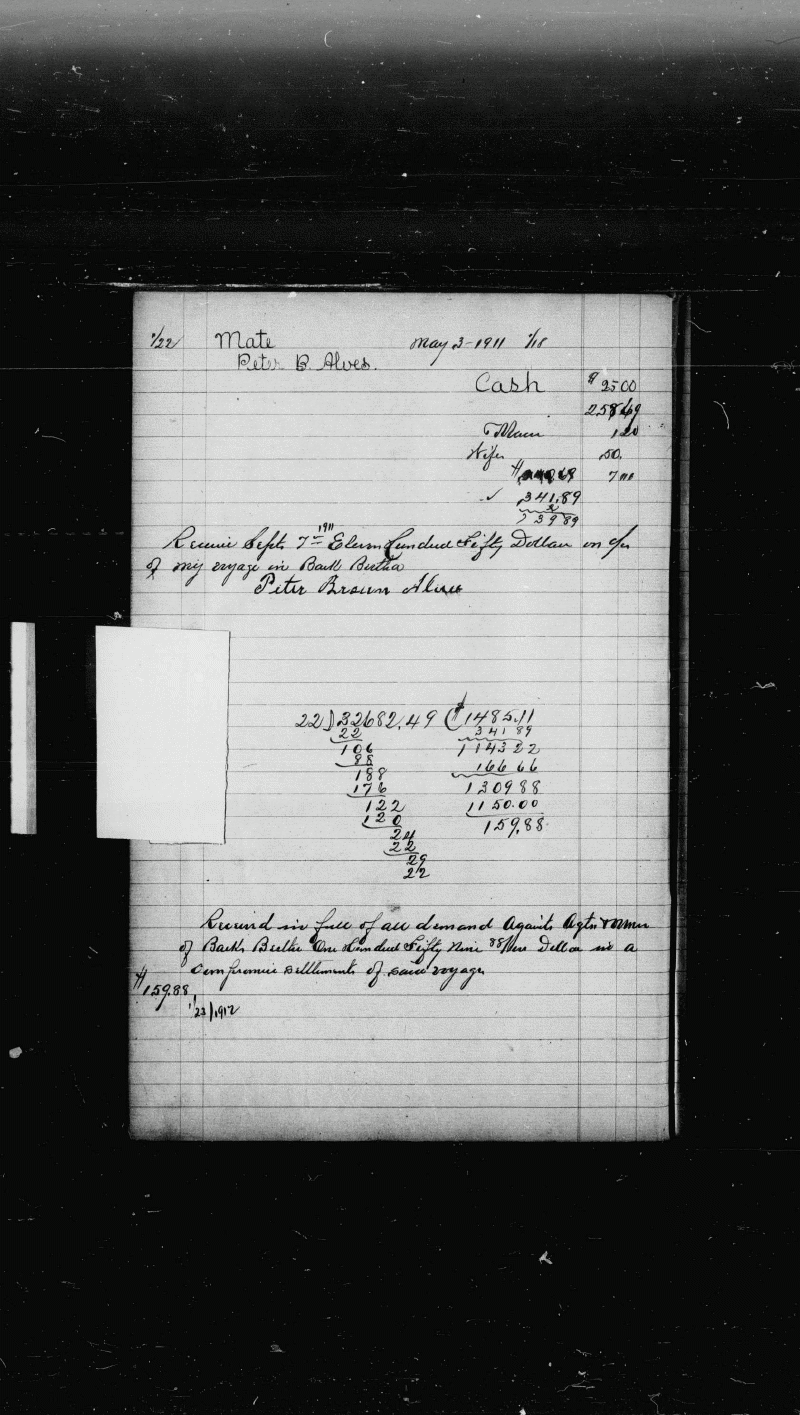 1/22 Mate May 3-1911 1/18
Peter B. Alves.
Cash $ 25 00
258 69
1 20
Wife 50.
7 00
✓ 341.89
2
339 89
Receive Sept. 7th 1911 Eleven Hundred Fifty Dollars on a/c
of my voyage in Bark Bertha
Peter Brown Alves
22)32682.49($1485.11
22 341 89
106 1143 22
88 166 66
188 1309 88
176 1150.00
122 159.88
120
24
22
29
22
Received in full of all demand Againts Agts & owner
of Bark Bertha One Hundred Fifty Nine 88/100 Dollar in a
Compromise settlements of said voyage
$159.88
1/23/1912